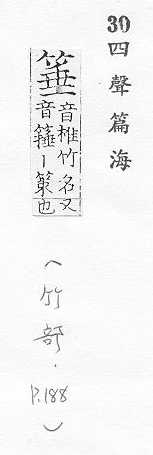 30四聲篇海
箠 音椎竹名又
音丨策也
(竹部.P.188)